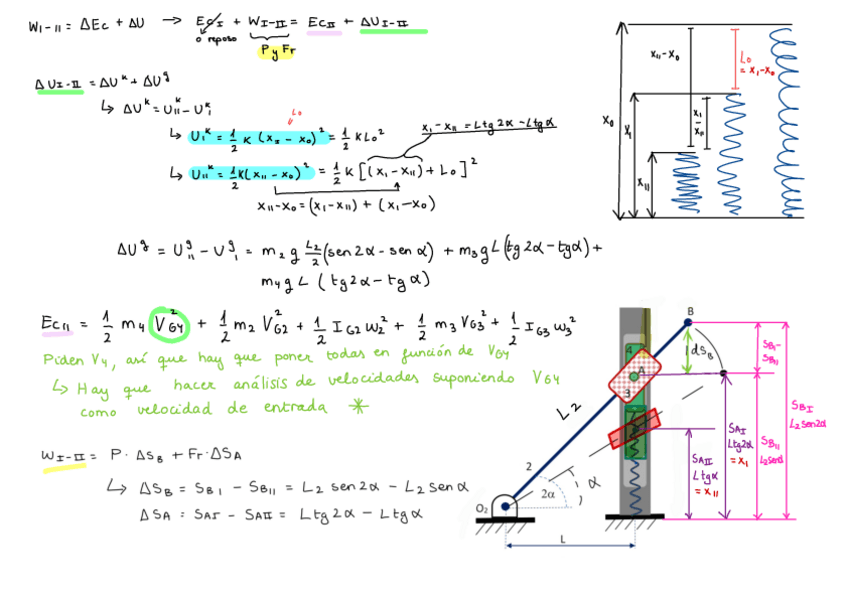 W I-II = ΔEc + ΔU → Ec I + W I-II = Ec II + ΔU I-II
0 reposo
P y Fr
ΔU I-II = ΔU^k + ΔU^g
↳ ΔU^k = U II^k - U I^k
L0
↳ U I^k = 1/2 K (x I - x0)² = 1/2 K L0²
x I - x II = L tg 2α - L tg α
↳ U II^k = 1/2 K (x II - x0)² = 1/2 K [(x I - x II) + L0]²
x II - x0 = (x I - x II) + (x I - x0)
ΔU^g = U II^g - U I^g = m2 g L2/2 (sen 2α - sen α) + m3 g L (tg 2α - tg α) +
m4 g L (tg 2α - tg α)
Ec II = 1/2 m4 V G4² + 1/2 m2 V G2² + 1/2 I G2 ω2² + 1/2 m3 V G3² + 1/2 I G3 ω3²
Piden V4, así que hay que poner todas en función de V G4
↳ Hay que hacer análisis de velocidades suponiendo V G4
como velocidad de entrada *
W I-II = P · ΔS B + Fr · ΔS A
↳ ΔS B = S B I - S B II = L2 sen 2α - L2 sen α
ΔS A = S A I - S A II = L tg 2α - L tg α
x II - x0
L0
= x I - x0
x0
x I
x I - x II
x II
B
dS B
S B I -
S B II
4
A
3
L2
S B I
L2 sen 2α
S A I
L tg 2α
= x I
S B II
L2 sen α
S A II
L tg α
= x II
2
2α
α
O2
L